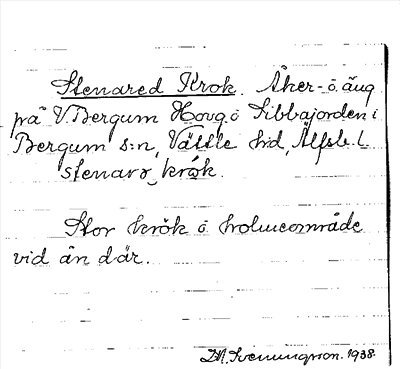 Stenared Krok. Åker- o. äng
på V. Bergum Horg. o Sibbajorden i
Bergum s:n, Vättle hd, Älfsb. l.
stenarə, krók.
Stor krök o holmeområde
vid ån där.
Svenungsson. 1938.